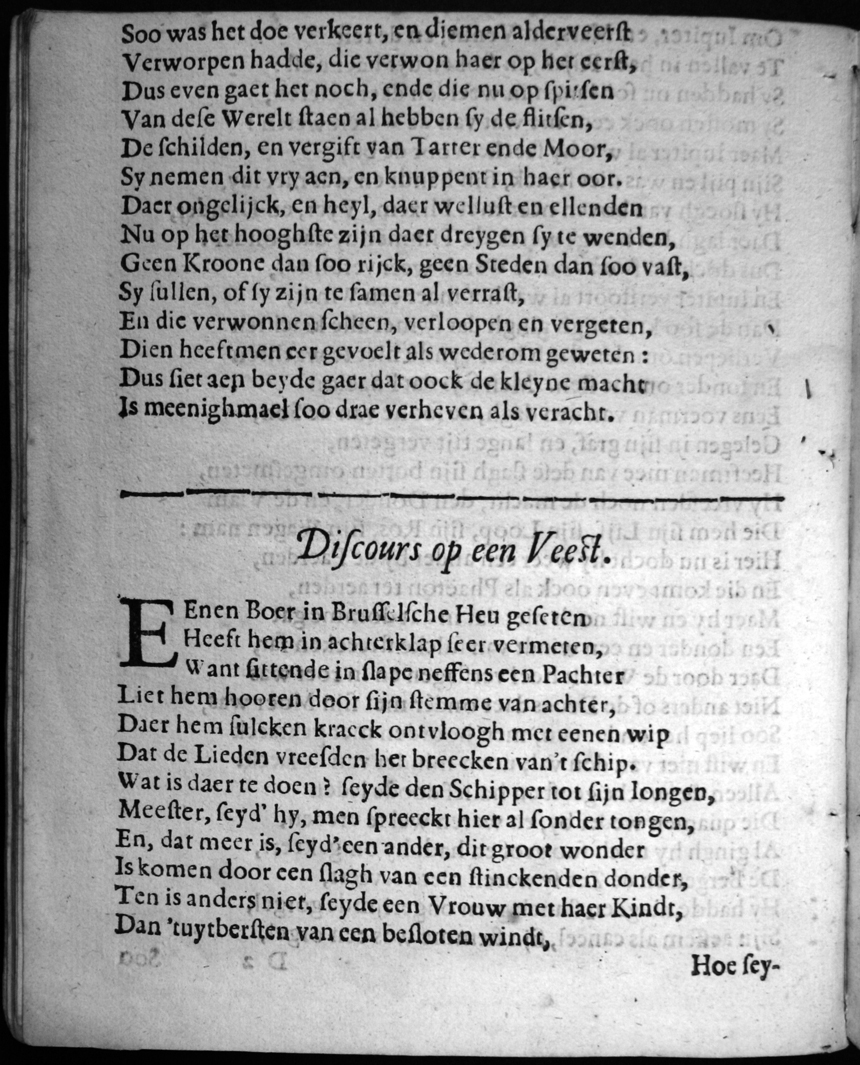 Soo was het doe verkeert, en diemen alderveerſt
Verworpen hadde, die verwon haer op het eerſt,
Dus even gaet het noch, ende die nu op ſpitſen
Van deſe Werelt ſtaen al hebben ſy de flitſen,
De ſchilden, en vergift van Tarter ende Moor,
Sy nemen dit vry aen, en knuppent in haer oor.
Daer ongelijck, en heyl, daer welluſt en ellenden
Nu op het hooghſte zijn daer dreygen ſy te wenden,
Geen Kroone dan ſoo rijck, geen Steden dan ſoo vaſt,
Sy ſullen, of ſy zijn te ſamen al verraſt,
En die verwonnen ſcheen, verloopen en vergeten,
Dien heeftmen eer gevoelt als wederom geweten :
Dus ſiet aen beyde gaer dat oock de kleyne macht
Is meenighmael ſoo drae verheven als veracht.
Diſcours op een Veeſt.
EEnen Boer in Bruſſelſche Heu geſeten
Heeft hem in achterklap ſeer vermeten,
Want ſittende in ſlape neffens een Pachter
Liet hem hooren door ſijn ſtemme van achter,
Daer hem ſulcken kraeck ontvloogh met eenen wip
Dat de Lieden vreeſden het breecken van't ſchip.
Wat is daer te doen ? ſeyde den Schipper tot ſijn Iongen,
Meeſter, ſeyd' hy, men ſpreeckt hier al ſonder tongen,
En, dat meer is, ſeyd' een ander, dit groot wonder
Is komen door een ſlagh van een ſtinckenden donder,
Ten is anders niet, ſeyde een Vrouw met haer Kindt,
Dan 'tuytberſten van een beſloten windt,
Hoe ſey-